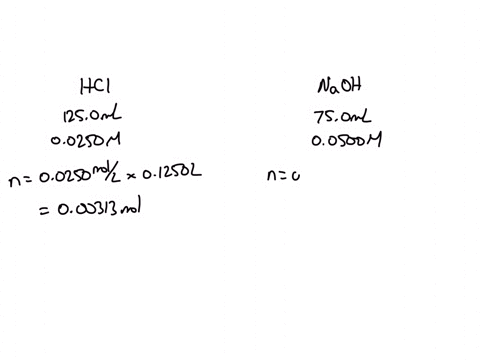 HCl
125.0mL
0.0250M
n = 0.0250 mol/L × 0.1250L
= 0.00313mol
NaOH
75.0mL
0.0500M
n = 0